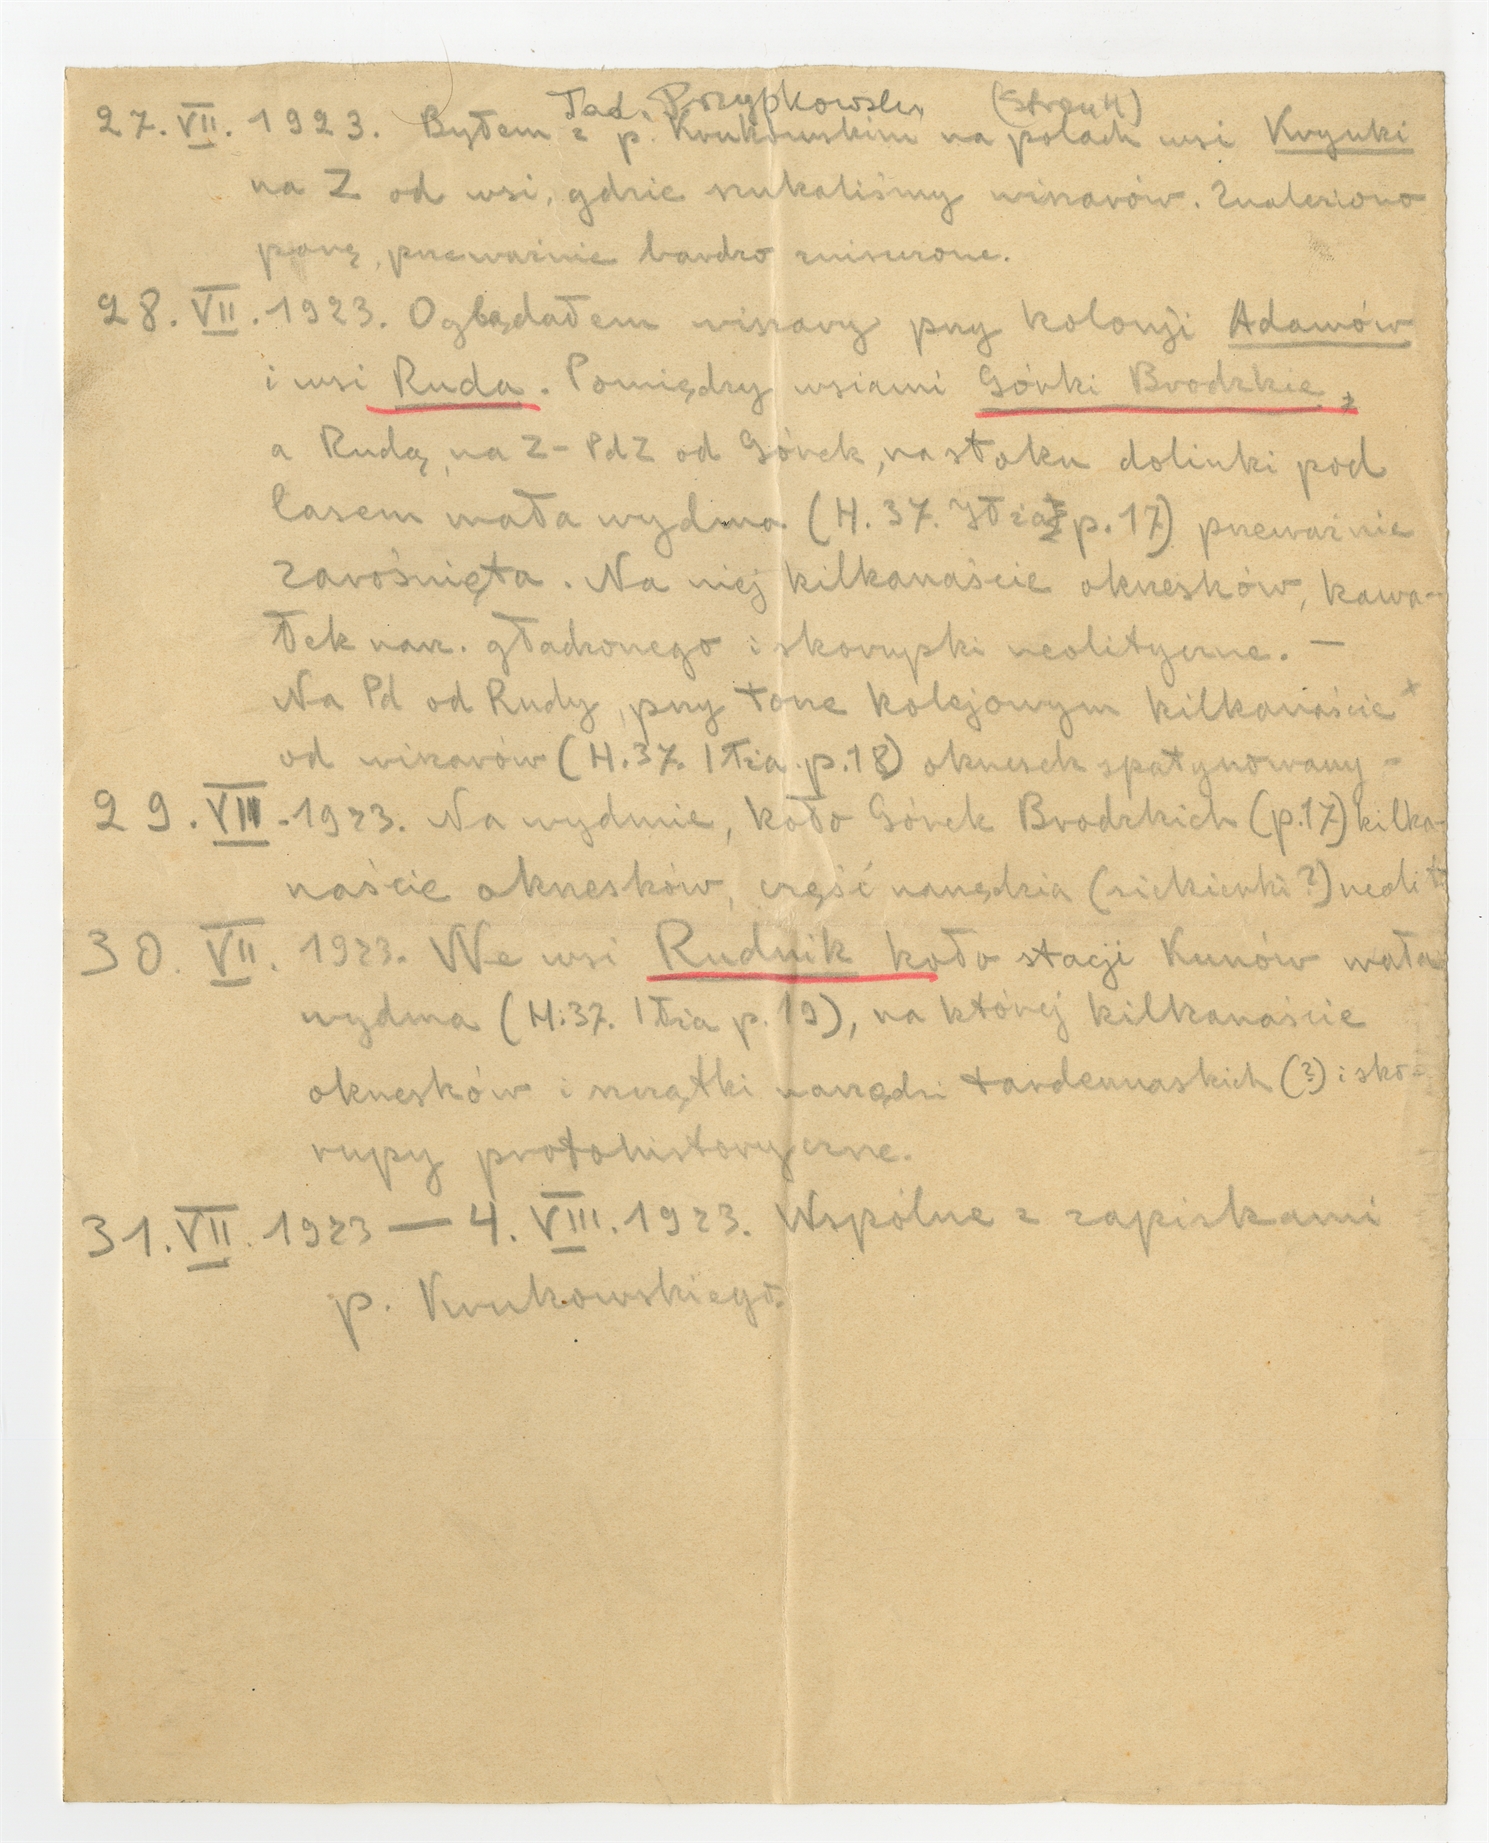 Tad. Przypkowski (Stron 4)
27. VII. 1923. Byłem z p. Krukowskim na polach wsi Krynki
na Z od wsi, gdzie szukaliśmy wiszarów. Znaleziono
parę, przeważnie bardzo zniszczone.
28. VII. 1923. Oglądałem wiszary przy kolonji Adamów
i wsi Ruda. Pomiędzy wsiami Górki Brodzkie,
a Rudą, na Z-PdZ od Górek, na stoku dolinki pod
lasem mała wydma (H. 37. Iłża p. 17) przeważnie
zarośnięta. Na niej kilkanaście okrzesków, kawa-
łek narz. gładzonego i skorupki neolityczne. —
Na Pd od Rudy, przy torze kolejowym kilkanaście x
od wiszarów (H. 37. Iłża p. 18) okrzesek spatynowany -
29. VII. 1923. Na wydmie, koło Górek Brodzkich (p. 17) kilka-
naście okrzesków, część narzędzia (siekierki?) neolit
30. VII. 1923. We wsi Rudnik koło stacji Kunów mała
wydma (H: 37. Iłża p. 19), na której kilkanaście
okrzesków i szczątki narzędzi tardenuaskich (?) i sko-
rupy protohistoryczne.
31. VII. 1923 — 4. VIII. 1923. Wspólne z zapiskami
p. Krukowskiego.